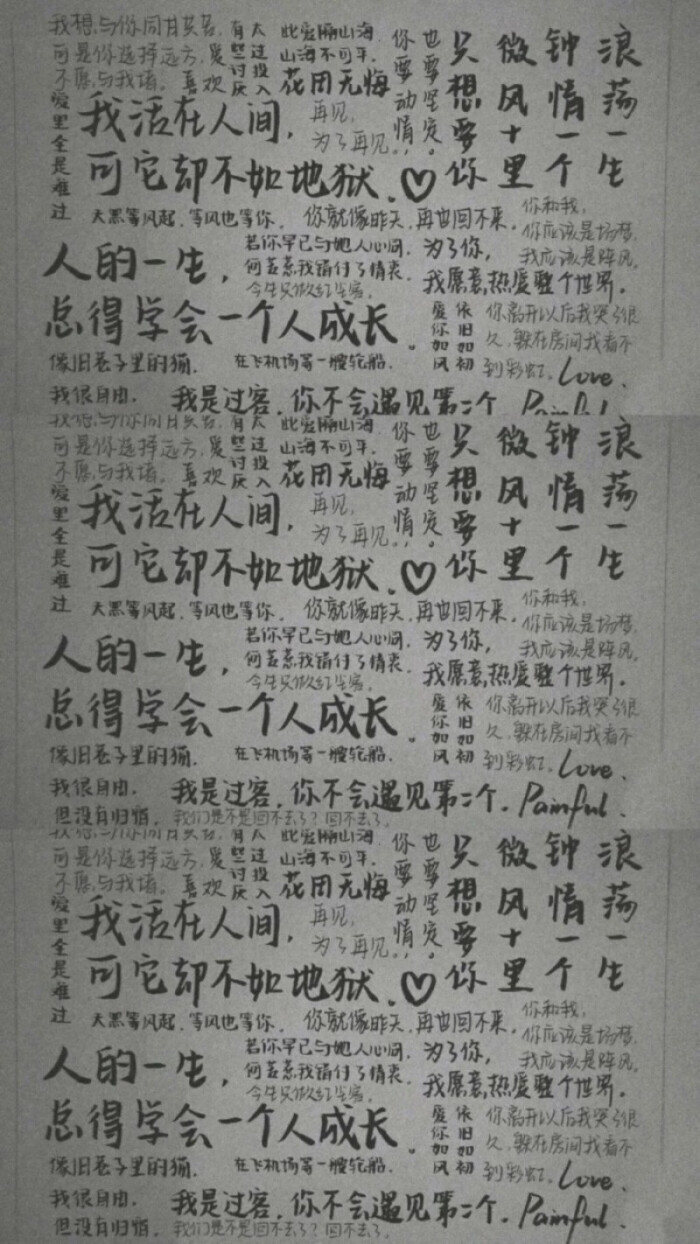 我想与你同甘共苦,
可是你选择远方,
不愿与我堵。喜欢
有些讨厌
太过投入
此爱隔山海
山海不可平.
花开无悔
你要动情
也要坚定。
只想要你
微风十里
钟情一个
浪荡一生
爱里全是难过
我活在人间,
再见,
为了再见..
可它却不如地狱.♡
天黑等风起,等风也等你.
你就像昨天,再也回不来.
你和我,
你应该是场梦,
我应该是阵风.
人的一生,
若你早已与她人心同,
何苦惹我错付了情衷.
为了你,
我愿意,热爱整个世界.
总得学会一个人成长.
爱你如风
依旧如初
你离开以后我哭了很
久,躲在房间我看不
到彩虹.Love.
像旧巷子里的猫.
在飞机场等一艘轮船.
我很自由.
我是过客,你不会遇见第二个.Painful
我想与你同甘共苦,
可是你选择远方,
不愿与我堵。喜欢
有些讨厌
太过投入
此爱隔山海
山海不可平.
花开无悔
你要动情
也要坚定。
只想要你
微风十里
钟情一个
浪荡一生
爱里全是难过
我活在人间,
再见,
为了再见..
可它却不如地狱.♡
天黑等风起,等风也等你.
你就像昨天,再也回不来.
你和我,
你应该是场梦,
我应该是阵风.
人的一生,
若你早已与她人心同,
何苦惹我错付了情衷.
为了你,
我愿意,热爱整个世界.
总得学会一个人成长.
爱你如风
依旧如初
你离开以后我哭了很
久,躲在房间我看不
到彩虹.Love.
像旧巷子里的猫.
在飞机场等一艘轮船.
我很自由.
但没有归宿.
我是过客,你不会遇见第二个.Painful.
我们是不是回不去了?回不去了.
我想与你同甘共苦,
可是你选择远方,
不愿与我堵。喜欢
有些讨厌
太过投入
此爱隔山海
山海不可平.
花开无悔
你要动情
也要坚定。
只想要你
微风十里
钟情一个
浪荡一生
爱里全是难过
我活在人间,
再见,
为了再见..
可它却不如地狱.♡
天黑等风起,等风也等你.
你就像昨天,再也回不来.
你和我,
你应该是场梦,
我应该是阵风.
人的一生,
若你早已与她人心同,
何苦惹我错付了情衷.
为了你,
我愿意,热爱整个世界.
总得学会一个人成长.
爱你如风
依旧如初
你离开以后我哭了很
久,躲在房间我看不
到彩虹.Love.
像旧巷子里的猫.
在飞机场等一艘轮船.
我很自由.
但没有归宿.
我是过客,你不会遇见第二个.Painful.
我们是不是回不去了?回不去了.